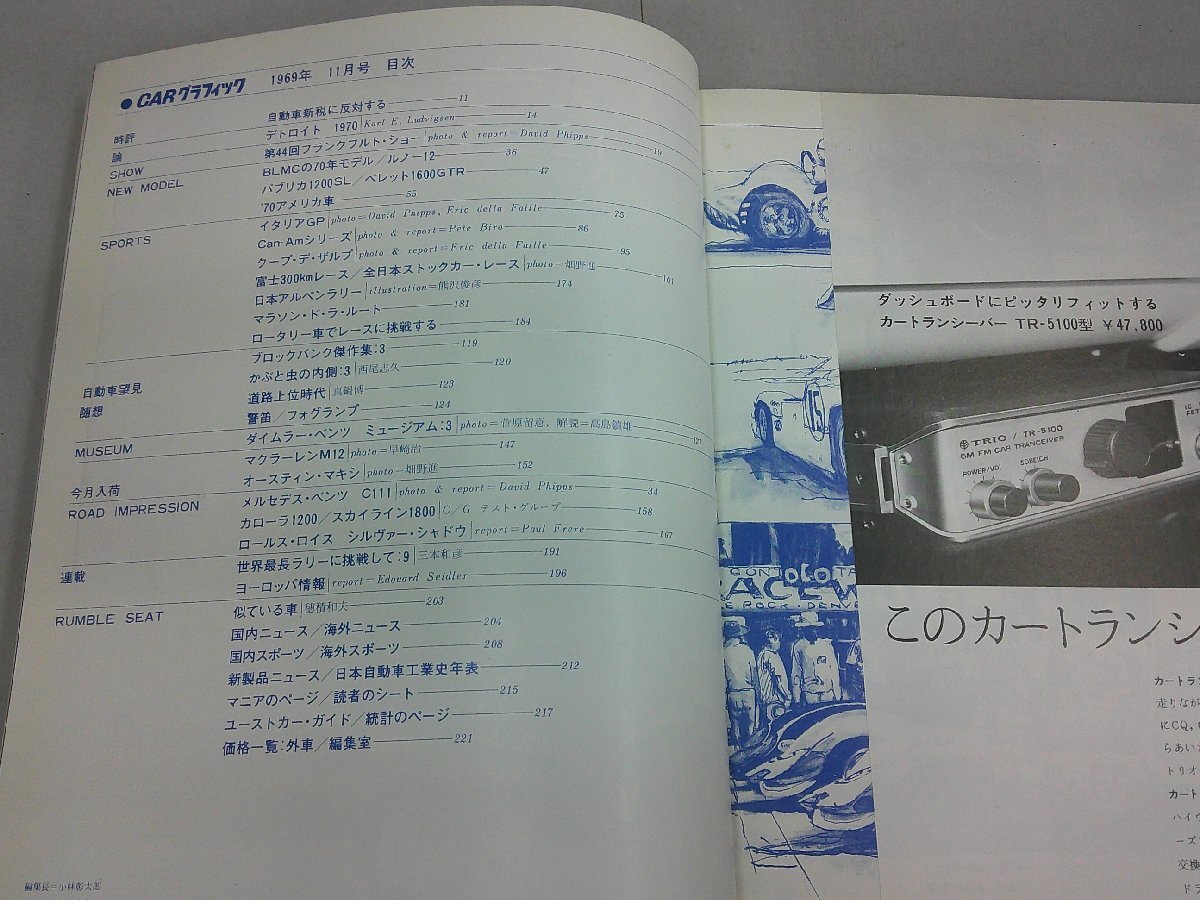 ●CARグラフィック 1969年 11月号 目次
時評 自動車新税に反対する 11
論 デトロイト 1970 Karl E. Ludvigsen 14
SHOW 第44回フランクフルト・ショー photo & report=David Phipps 19
NEW MODEL BLMCの70年モデル/ルノー12 36
パブリカ1200SL/ベレット1600GTR 47
'70アメリカ車 55
SPORTS イタリアGP photo=David Phipps, Eric della Faille 75
Can-Amシリーズ photo & report=Pete Biro 86
クープ・デ・ザルプ photo & report=Eric della Faille 95
富士300kmレース/全日本ストックカー・レース photo=畑野進 101
日本アルペンラリー illustration=熊沢俊彦 174
マラソン・ド・ラ・ルート 181
ロータリー車でレースに挑戦する 184
自動車望見 ブロックバンク傑作集:3 119
随想 かぶと虫の内側:3 西尾忠久 120
道路上位時代 真鍋博 123
警笛/フォグランプ 124
MUSEUM ダイムラー・ベンツ ミュージアム:3 photo=菅原留意, 解説=高島鎮雄 127
今月入荷 マクラーレンM12 photo=早崎治 147
オースティン・マキシ photo=畑野進 152
ROAD IMPRESSION メルセデス・ベンツ C111 photo & report=David Phipps 34
カローラ1200/スカイライン1800 C/G テスト・グループ 158
ロールス・ロイス シルヴァー・シャドウ report=Paul Frere 167
連載 世界最長ラリーに挑戦して:9 三本和彦 191
ヨーロッパ情報 report=Edouard Seidler 196
RUMBLE SEAT 似ている車 穂積和夫 203
国内ニュース/海外ニュース 204
国内スポーツ/海外スポーツ 208
新製品ニュース/日本自動車工業史年表 212
マニアのページ/読者のシート 215
ユーストカー・ガイド/統計のページ 217
価格一覧:外車/編集室 221
編集長=小林彰太郎
ACEW
E ROCK・DENVE
ダッシュボードにピッタリフィットする
カートランシーバー TR-5100型 ¥47,800
TRIO / TR-5100
6M FM CAR TRANCEIVER
POWER/VOL
SQUELCH
このカートランシ
カートラン
走りなが
にCQ,
らあい
トリオ
カート
ハイウ
ーズ
交換
ドラ